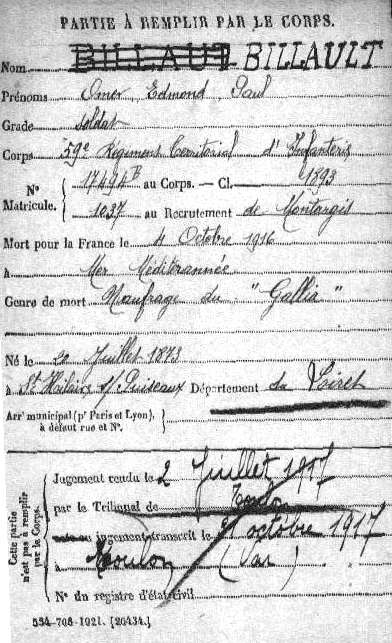 PARTIE À REMPLIR PAR LE CORPS.
Nom BILLAUT BILLAULT
Prénoms Omer, Edmond, Paul
Grade Soldat
Corps 59e Régiment Territorial d'Infanterie
N° Matricule. 17494 B au Corps. — Cl. 1893
1037 au Recrutement de Montargis
Mort pour la France le 4 Octobre 1916
à Mer Méditerannée
Genre de mort Naufrage du "Gallia"
Né le 20 Juillet 1873
à St Hilaire s/ Puiseaux Département du Loiret
Arrt municipal (pr Paris et Lyon),
à défaut rue et N°.
Cette partie n'est pas à remplir par le Corps.
Jugement rendu le 2 Juillet 1917
par le Tribunal de Toulon
jugement transcrit le octobre 1917
à Toulon (Var)
N° du registre d'état civil
534-708-1921. [26434.]